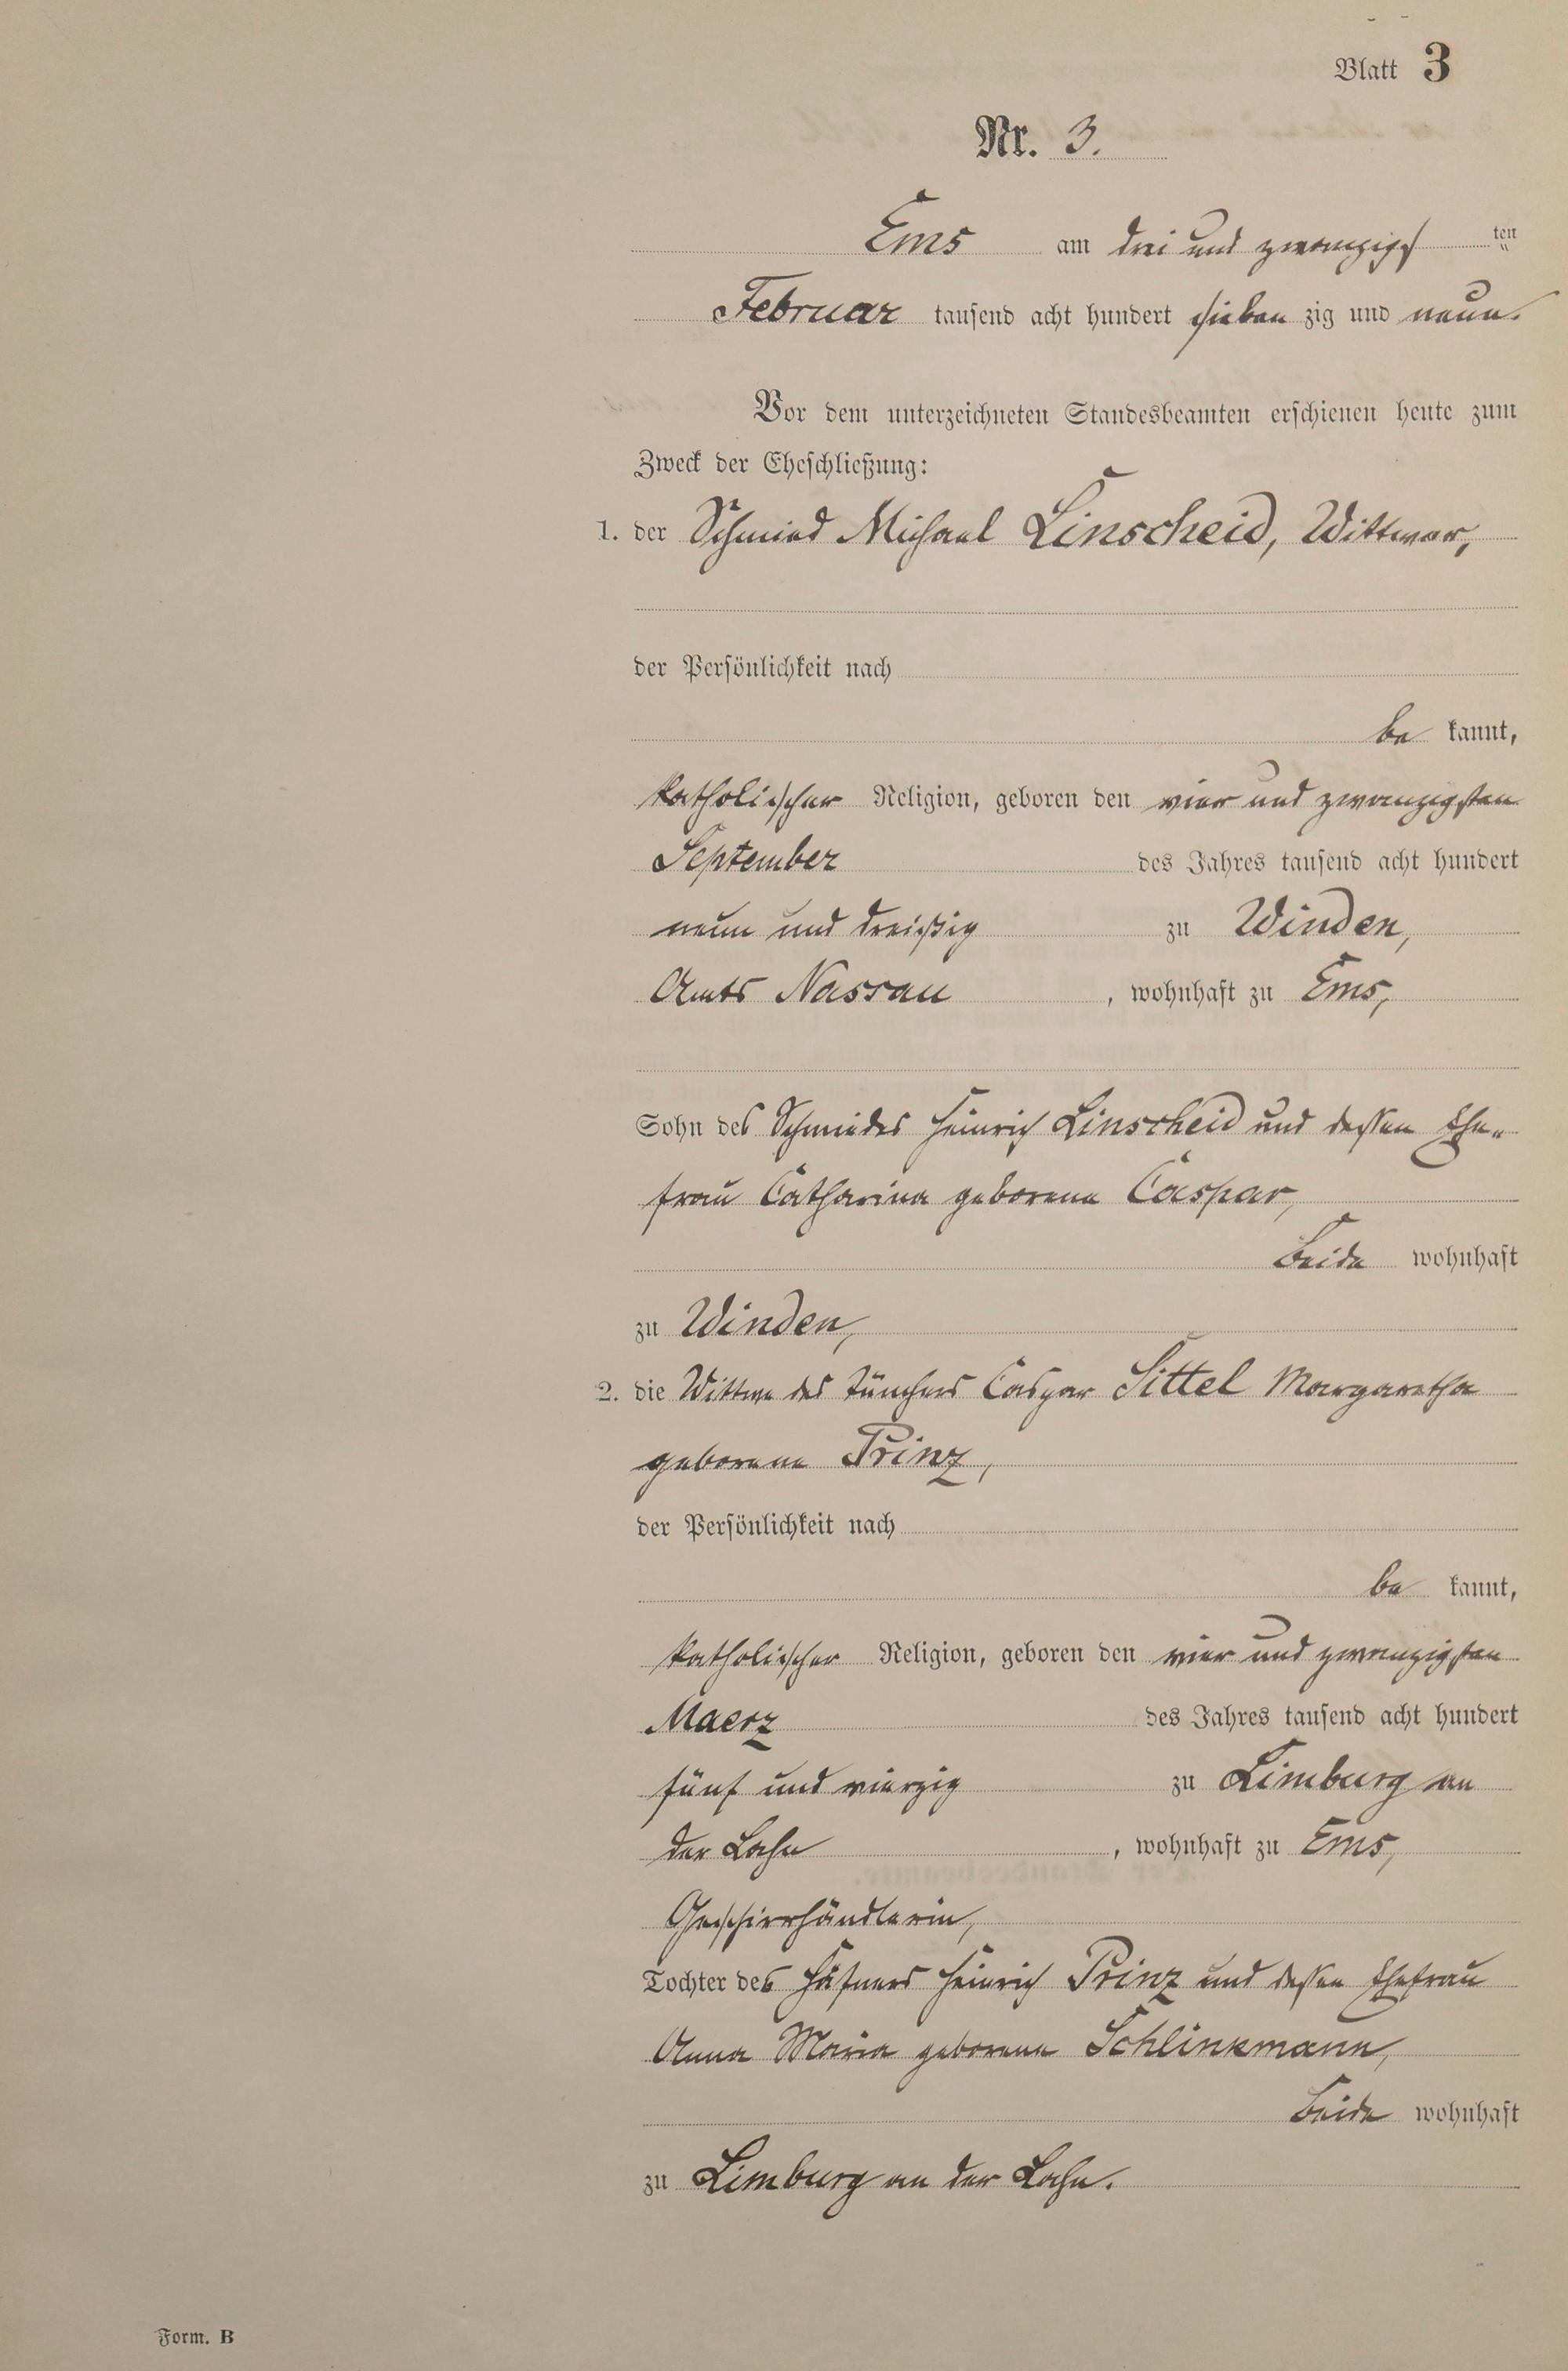 Blatt 3
Nr. 3.
Ems am drei und zwanzigs ten
Februar tausend acht hundert sieben zig und neun.
Vor dem unterzeichneten Standesbeamten erschienen heute zum
Zweck der Eheschließung:
1. der Schmied Michael Linscheid, Wittwer,
der Persönlichkeit nach
be kannt,
katholischer Religion, geboren den vier und zwanzigsten
September des Jahres tausend acht hundert
neun und dreißig zu Winden,
Amts Nassau, wohnhaft zu Ems,
Sohn des Schmiedes Heinrich Linscheid und dessen Ehe„
frau Catharina geborene Caspar,
beide wohnhaft
zu Winden,
2. die Wittwe des Tünchers Caspar Sittel Margaretha
geborene Prinz,
der Persönlichkeit nach
be kannt,
katholischer Religion, geboren den vier und zwanzigsten
Maerz des Jahres tausend acht hundert
fünf und vierzig zu Limburg an
der Lahn, wohnhaft zu Ems,
Geschirrhändlerin,
Tochter des Häfners Heinrich Prinz und dessen Ehefrau
Anna Maria geborene Schlinkmann,
beide wohnhaft
zu Limburg an der Lahn.
Form. B